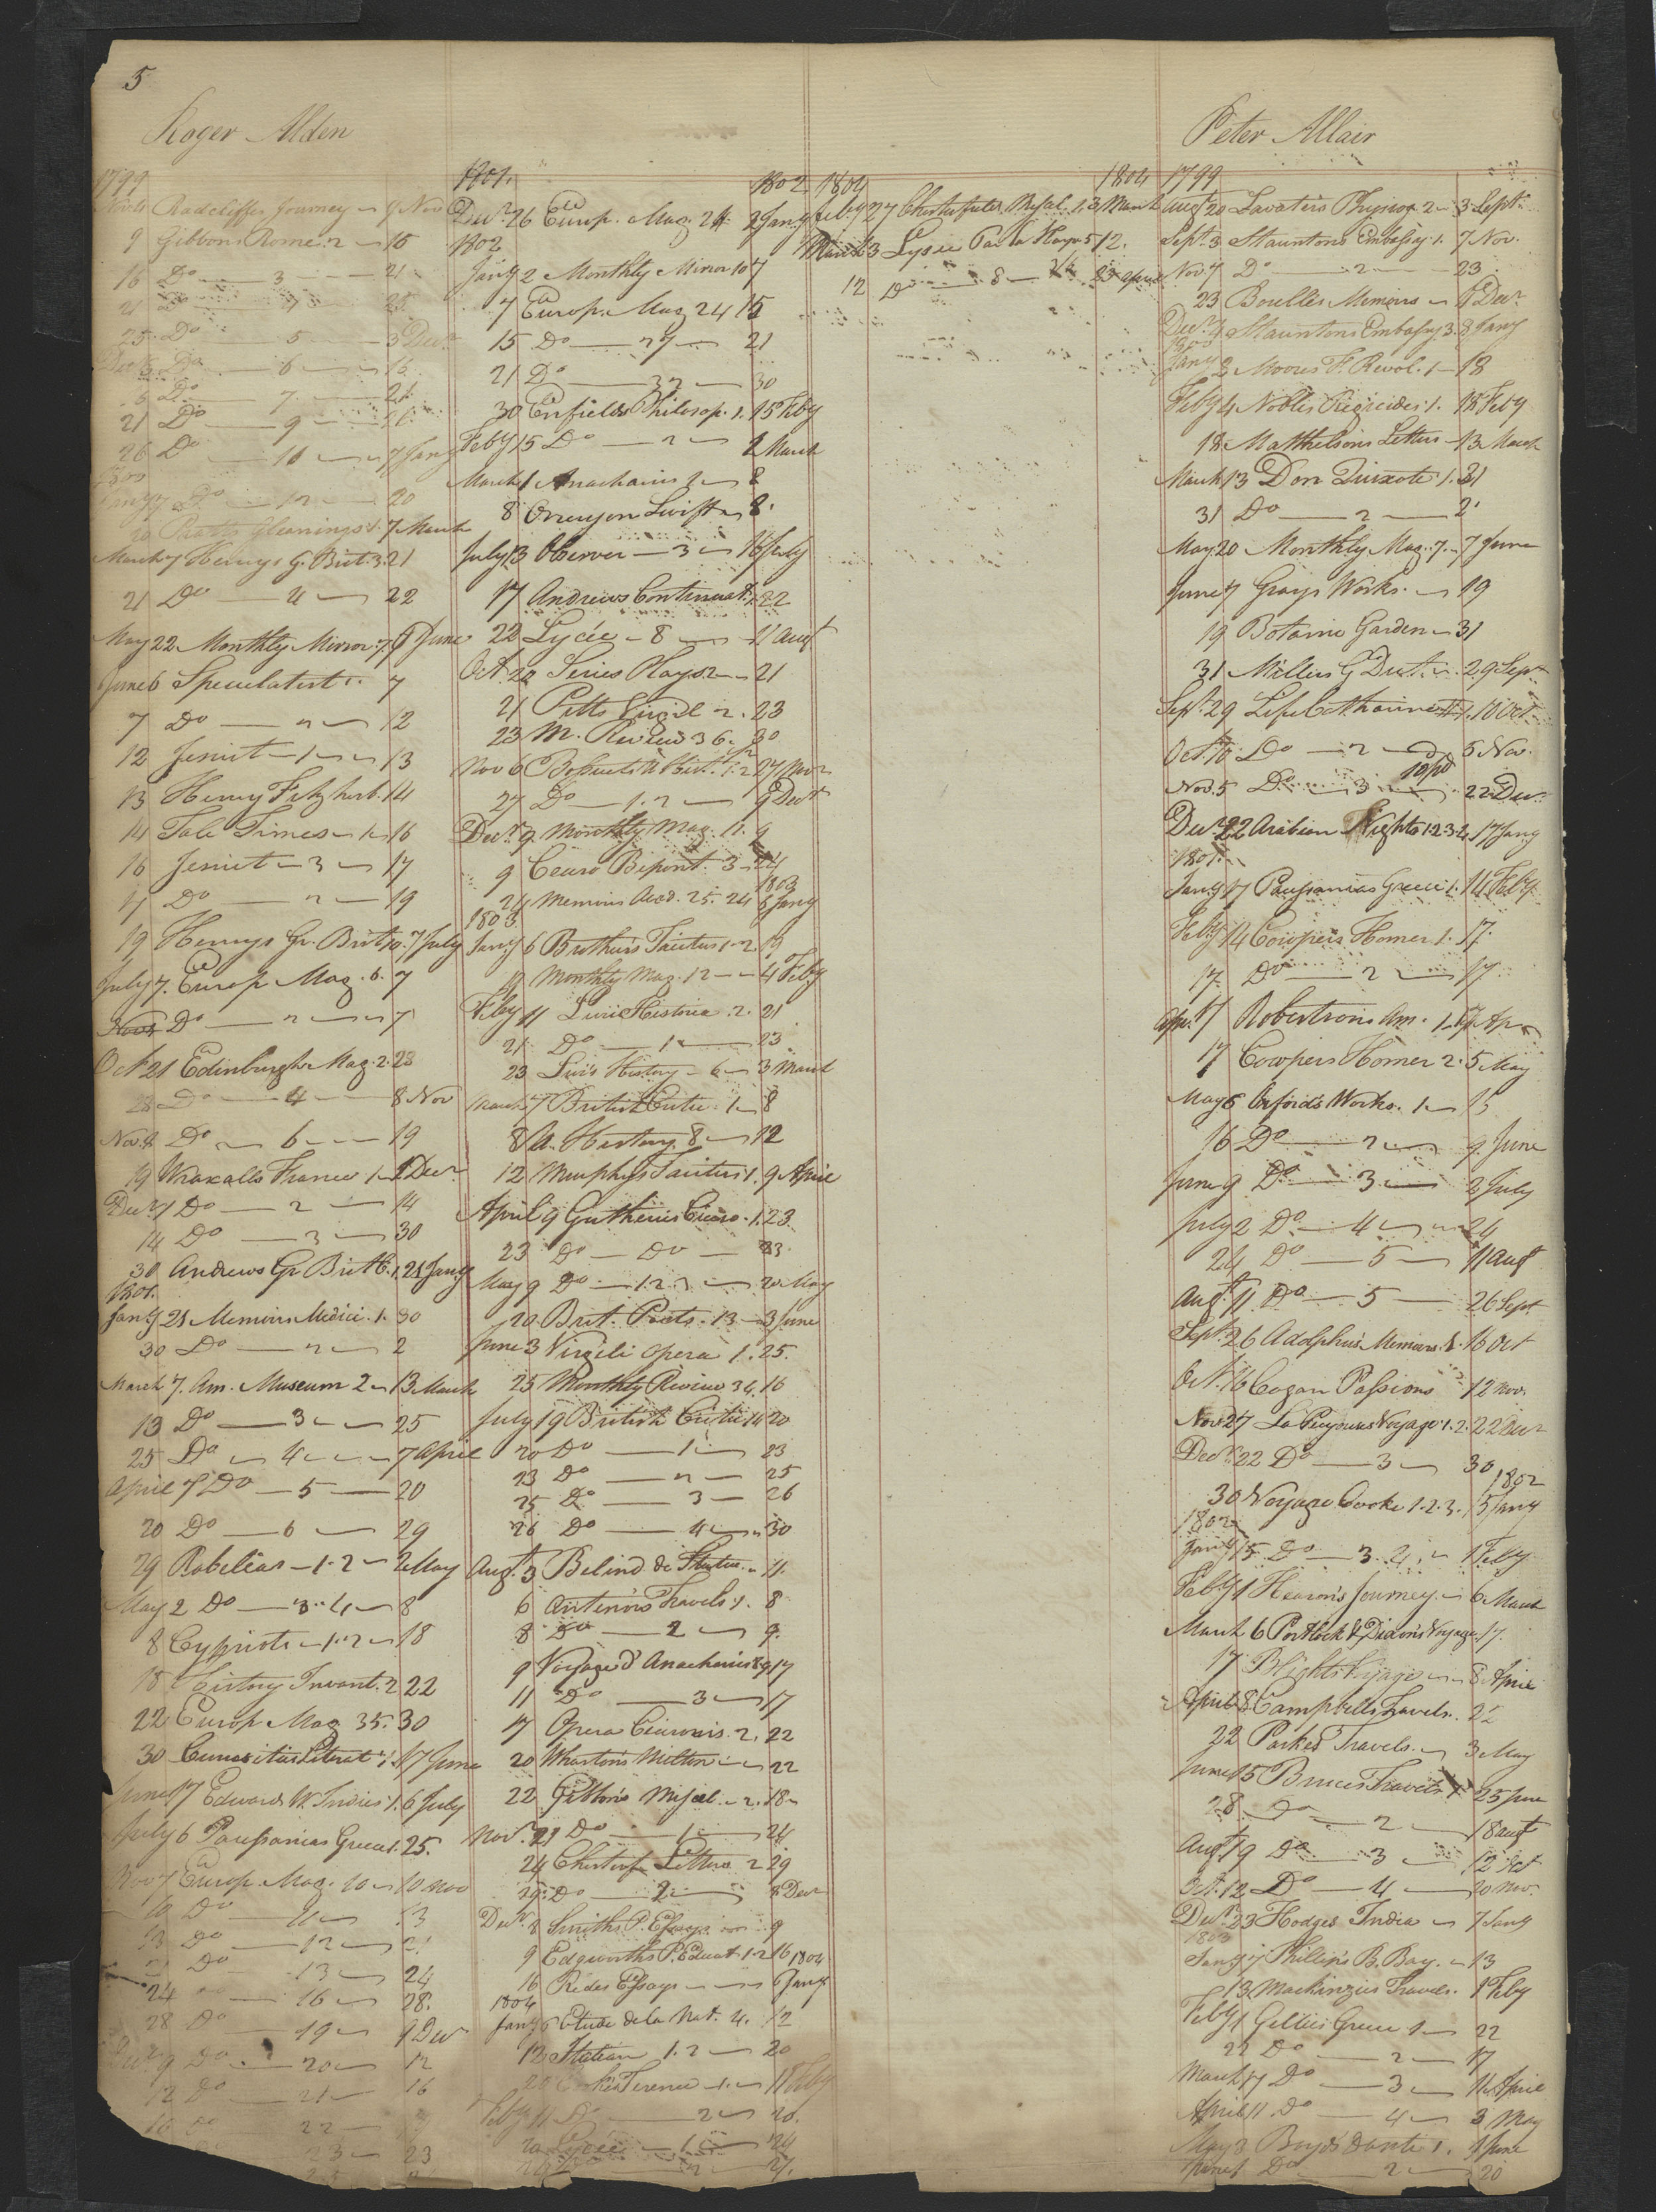 5
Roger Alden
1799
Nov 4 Radcliffes Journey 9 Nov
9 Gibbons Rome 2 16
16 Do 3 21
21 Do 4 25
25 Do 5 3 Decr
Decr 3 Do 6 16
Do 7 21
21 Do 9 26
26 Do 10 7 Jany
1800
Jany 7 Do 12 20
20 Pratts Gleanings 1. 7 March
March 7 Henrys G. Brit. 3 21
21 Do 4 22
May 22 Monthly Mirror 7 6 June
June 6 Speculatist 1. 7
7 Do 2 12
12 Jesuit 1 13
13 Henry Fitzherb. 14
14 Tale Times 1 16
16 Jesuit 3 17
17 Do 2 19
19 Henrys Gr. Brit 10. 7 July
July 7. Europ Mag. 6. 7
Do 2 7
Oct 21 Edinburgh Mag. 2. 28
28 Do 4 8 Nov
Nov. 8 Do 6 19
19 Wraxalls France 1 Decr
Decr 7 Do 2 14
14 Do 3 30
30 Andrews Gr Brit 1. 21 Jany
1801.
Jany 21 Memoirs Medici. 1. 30
30 Do 2 2
March 7. Am. Museum 2 13 March
13 Do 3 25
25 Do 4 7 April
April 7 Do 5 20
20 Do 6 29
29 Rabelias 1.2 2 May
May 2 Do 3.4 8
8 Cypriots 1.2 18
18 History Invent. 2 22
22 Europ Mag 35. 30
30 Curiosities Literat. 17 June
June 17 Edwards W. Indies 1. 6 July
July 6 Pausanias Greece 1. 25.
Nov 7 Europ. Mag. 10 10 Nov
10 Do 11 13
13 Do 12 21
21 Do 13 24
24 Do 16 28.
28 Do 19 9 Decr
Decr 9 Do 20 12
12 Do 21 16
16 Do 22
23 23
1801. 1802
Decr 26 Europ. Mag. 24 2 Jany
1802
Jany 2 Monthly Mirror 10 7
7 Europ. Mag 24 15
15 Do 27 21
21 Do 32 30
30 Enfields Philosop. 1. 15 Feby
Feby 15 Do 2 1 March
March 1 Anacharsis 2 8
8 Orreryon Swift 8.
July 13 Observer 3 16 July
17 Andrews Continuat. 22
22 Lycée 8 11 Augt
Oct. 20 Series Plays 2 21
21 Pitts Virgil 2. 23
23 M. Review 36. 30
Nov 6 Bossuets U Hist. 1.2 27 Nov
27 Do 1.2 9 Decr
Decr 9 Monthly Mag. 11. 9
9 Cicero Bipont. 3 24
1803
24 Memoirs Acad. 25. 24 6 Jany
1803
Jany 6 Brothier's Tacitus 1.2. 19
19 Monthly Mag. 12 4 Feby
Feby 11 Livii Historia. 2. 21
21 Do 1 23
23 Livi's History 6 3 March
March 7 British Critic. 1 8
8 A. History. 8 12
12 Murphys Tacitus 1. 9 April
April 9 Guthries Cicero. 1. 23
23 Do Do 23
May 9 Do 1.2.3 20 May
20 Brit. Poets. 13 3 June
June 3 Virgili Opera 1. 25.
25 Monthly Review 34. 16
July 19 British Critic 14 20
20 Do 1 23
23 Do 2 25
25 Do 3 26
26 Do 4 30
Augt. 3 11.
6 Antenors Travels 1. 8
8 Do 2 9.
9 Voyage d'Anacharsis 17
11 Do 3 17
17 Opera Ciceronis. 2. 22
20 Wharton's Milton 22
22 Gibbon's Miscel. 2. 18
Novr. 21 Do 1 24
24 Chesterf. Letters 2 29
29 Do 2 8 Decr
Decr. 8 Smiths P. Essays 9
9 Edgeworths P. Educat 1.2 16
1804
16 Rides Essays 6 Jany
1804
Jany 6 Etude de la Nat. 4. 12
12 Statian 1.2 20
20 Cooke's Terence 1. 11 Feby
Feby 11 Do 2 20.
20 Lycée 1 24
24 Do 2 27.
1804 1804
Feby 27 Chesterfields Miscel. 1. 3 March
March 3 Lycee Par la Harpe 5 12.
12 Do 8 23 April
Peter Allair
1799
Augt 20 Lavaters Physiog. 2 3 Sept.
Sept. 3 Stauntons Embassy. 1. 7 Nov.
Nov. 7 Do 2 23
23 Bouilles Memoirs Decr
Decr Stauntons Embassy 3. 3 Jany
1800
Jany 3 Moores F. Revol. 1 18
Feby 4 Nobles Regicides 1. 18 Feby
18 Matthisons Letters 13 March
March 13 Don Quixote 1. 31
31 Do 2 2.
May 20 Monthly Mag. 7. 7 June
June 7 Grays Works. 19
19 Botanic Garden 31
31 Millers G. Dict. 29 Sept
Sept. 29 Life Catharine II 1. 10 Oct.
Oct. 10 Do 2 5 Nov.
Nov. 5 Do 3 22 Decr
Decr. 22 Arabian Nights 1.2.3.4. 17 Jany
1801.
Jany 17 Pausanias Greece 1. 14 Feby
Feby 14 Cowpers Homer 1. 17.
17 Do 2 17
Apr. 17 Robertsons Am. 1. 17 Apr
17 Cowpers Homer 2. 5 May
May 5 Orfords Works. 1 15
16 Do 2 9. June
June 9 Do 3 2 July
July 2 Do 4 24
24 Do 5 11 Augt
Augt. 11 Do 5 26 Sept
Sept. 26 Adolphus Memoirs 1. 16 Oct
Oct. 16 Cogan Passions 12 Nov.
Nov 27 La Peyrouses Voyage 1.2. 22 Decr
Decr. 22 Do 3 30
1802
30 Voyage Cooke 1.2.3. 15 Jany
1802
Jany 15 Do 3.4. 1 Feby
Feby 1 Hearon's Journey 6 March
March 6 Portlock & Dixon's Voyage 17.
17 Blighs Voyage 8 April
April 8 Campbells Travels. 22
22 Parkes Travels. 3 May
June 15 Bruces Travels 1 25 June
28 Do 2 18 Augt
Augt 19 Do 3 12 Oct
Oct. 12 Do 4 20 Nov.
Decr. 23 Hodges India 7 Jany
1803
Jany 7 Phillips B. Bay. 13
13 Mackinzies Travels. 1 Feby
Feby 1 Gillies Greece 1 22
22 Do 2 17
March 17 Do 3 11 April
April 11 Do 4 3 May
May 3 Boyds Dante 1. 1 June
June 1 Do 2 20